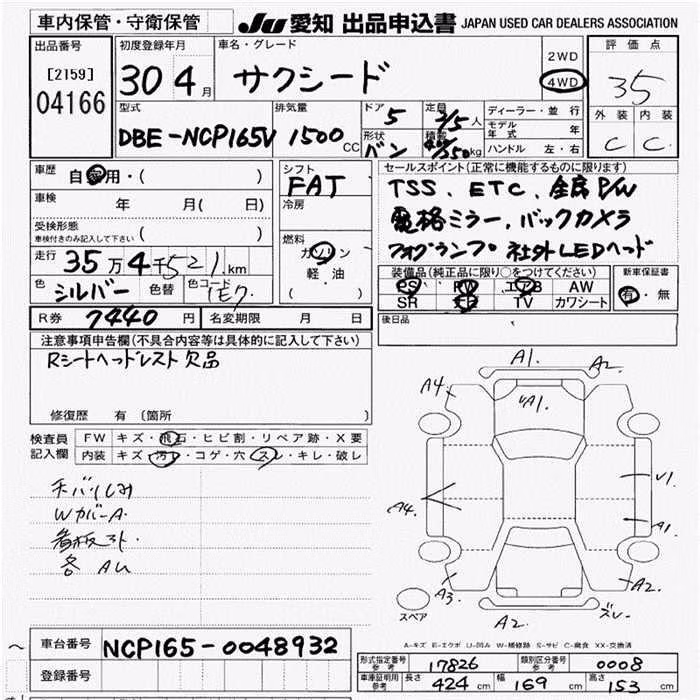 車内保管・守衛保管
JU 愛知 出品申込書 JAPAN USED CAR DEALERS ASSOCIATION
出品番号 初度登録年月 車名・グレード 評価点
[2159] 30 4月 サクシード 2WD 4WD 35
04166
型式 排気量 ドア 定員 ディーラー・並行 外装 内装
DBE-NCP165V 1500cc 5 2/5人 モデル年式 年 C C
形状 バン 積載 kg ハンドル 左・右
車歴 自家用・( ) シフト FAT セールスポイント(正常に機能するものに限ります)
車検 年 月( 日) 冷房 TSS、ETC、全席P/W
受検形態 電格ミラー、バックカメラ
車検付きのみ記入して下さい ( ) 燃料 ガソリン フォグランプ 社外LEDヘッド
走行 35万4千521km 軽油 装備品(純正品に限り○をつけてください) 新車保証書
色 シルバー 色替 色コード 1E7 ( ) PS PW エアB AW 有・無
SR TV カワシート
R券 7440円 名変期限 月 日 後日品
注意事項申告欄(不具合内容等は具体的に記入して下さい)
Rシートヘッドレスト欠品
修復歴 有 (箇所
検査員 FW キズ・飛石・ヒビ割・リペア跡・X要
記入欄 内装 キズ・汚レ・コゲ・穴・スレ・キレ・破レ
WカバーA
看板アト
各AU
A1. A2.
A4 A1.
A4 A1
A3 A2
スペア A2 ズレ
A-キズ E-エクボ U-凹み W-補修跡 S-サビ C-腐食 XX-交換済
車台番号 NCP165-0048932
登録番号
形式指定番号 参考 17826 類別区分番号 参考 0008
車庫証明用 参考 長さ 424cm 幅 169cm 高さ 153cm